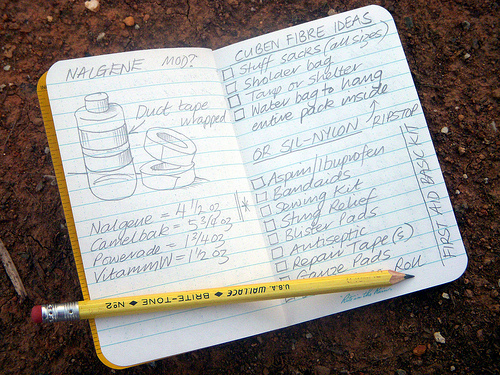 NALGENE MOD?
Duct tape
wrapped
Nalgene = 4 1/2 oz
Camelbak = 5 3/4 oz
Powerade = 1 3/4 oz
VitammW = 1 1/2 oz
CUBEN FIBRE IDEAS
Stuff sacks (all sizes)
Sholder bag
Tarp or shelter
Water bag to hang
entire pack inside
OR SIL-NYLON / RIPSTOP
Aspirin/Ibuprofen
Bandaids
Sewing Kit
Sting Relief
Blister Pads
Antiseptic
Repair Tape(s)
Gauze Pads
Roll
FIRST AID BASIC KIT
U.S.A. WALLACE BRITE-TONE No2